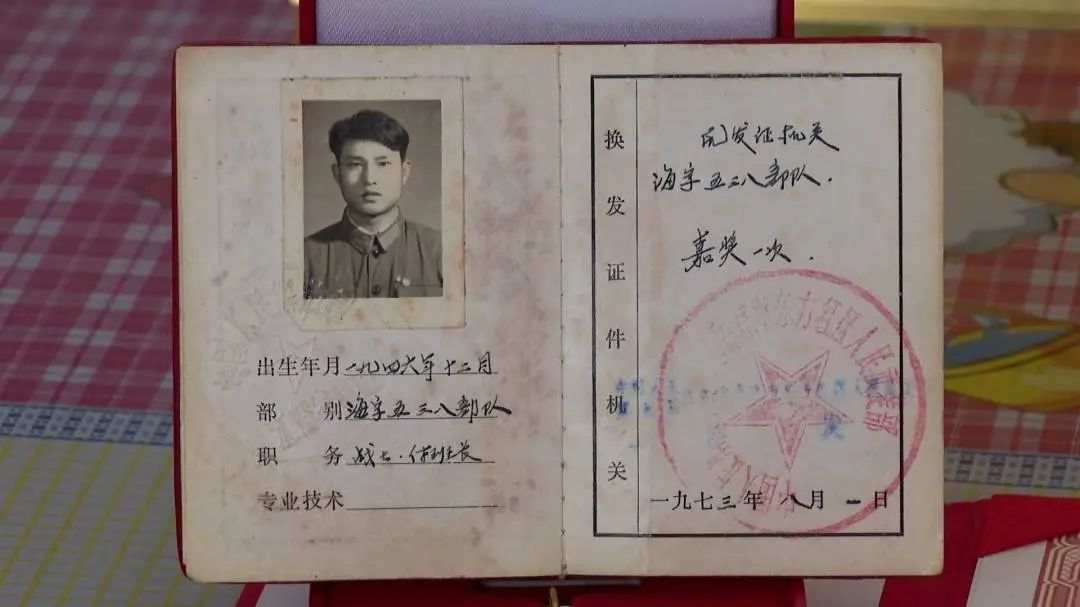 出生年月一九四六年十二月
部别海字五三八部队
职务战士.付班长
专业技术
换发证件机关
原发证机关
海字五三八部队.
嘉奖一次.
一九七三年八月一日